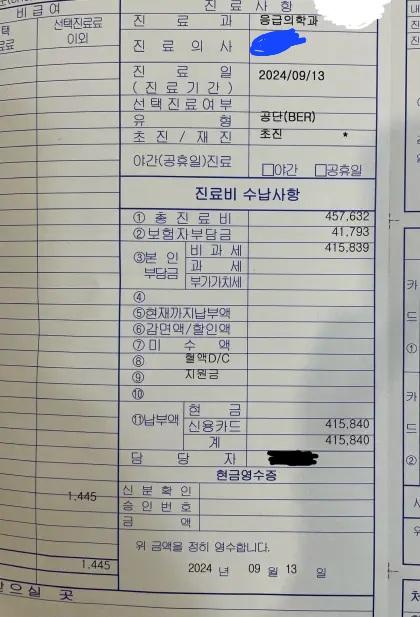 진 료 사 항
비 급 여
선택진료료
이외
택
료료
진 료 과 응급의학과
진 료 의 사
진 료 일
(진 료 기 간)
2024/09/13
선택진료여부
유 형 공단(BER)
초 진 / 재 진 초진 *
야간(공휴일)진료 □야간 □공휴일
진료비 수납사항
① 총 진 료 비 457,632
② 보험자부담금 41,793
③ 본 인
부담금
비 과 세 415,839
과 세
부가가치세
④
⑤ 현재까지납부액
⑥ 감면액/할인액
⑦ 미 수 액
⑧ 혈액D/C
⑨ 지원금
⑩
⑪ 납부액
현 금
신용카드 415,840
계 415,840
담 당 자
현금영수증
신 분 확 인
승 인 번 호
금 액
1,445
위 금액을 정히 영수합니다.
1,445
2024 년 09 월 13 일
받으실 곳
카
드
①
카
드
②